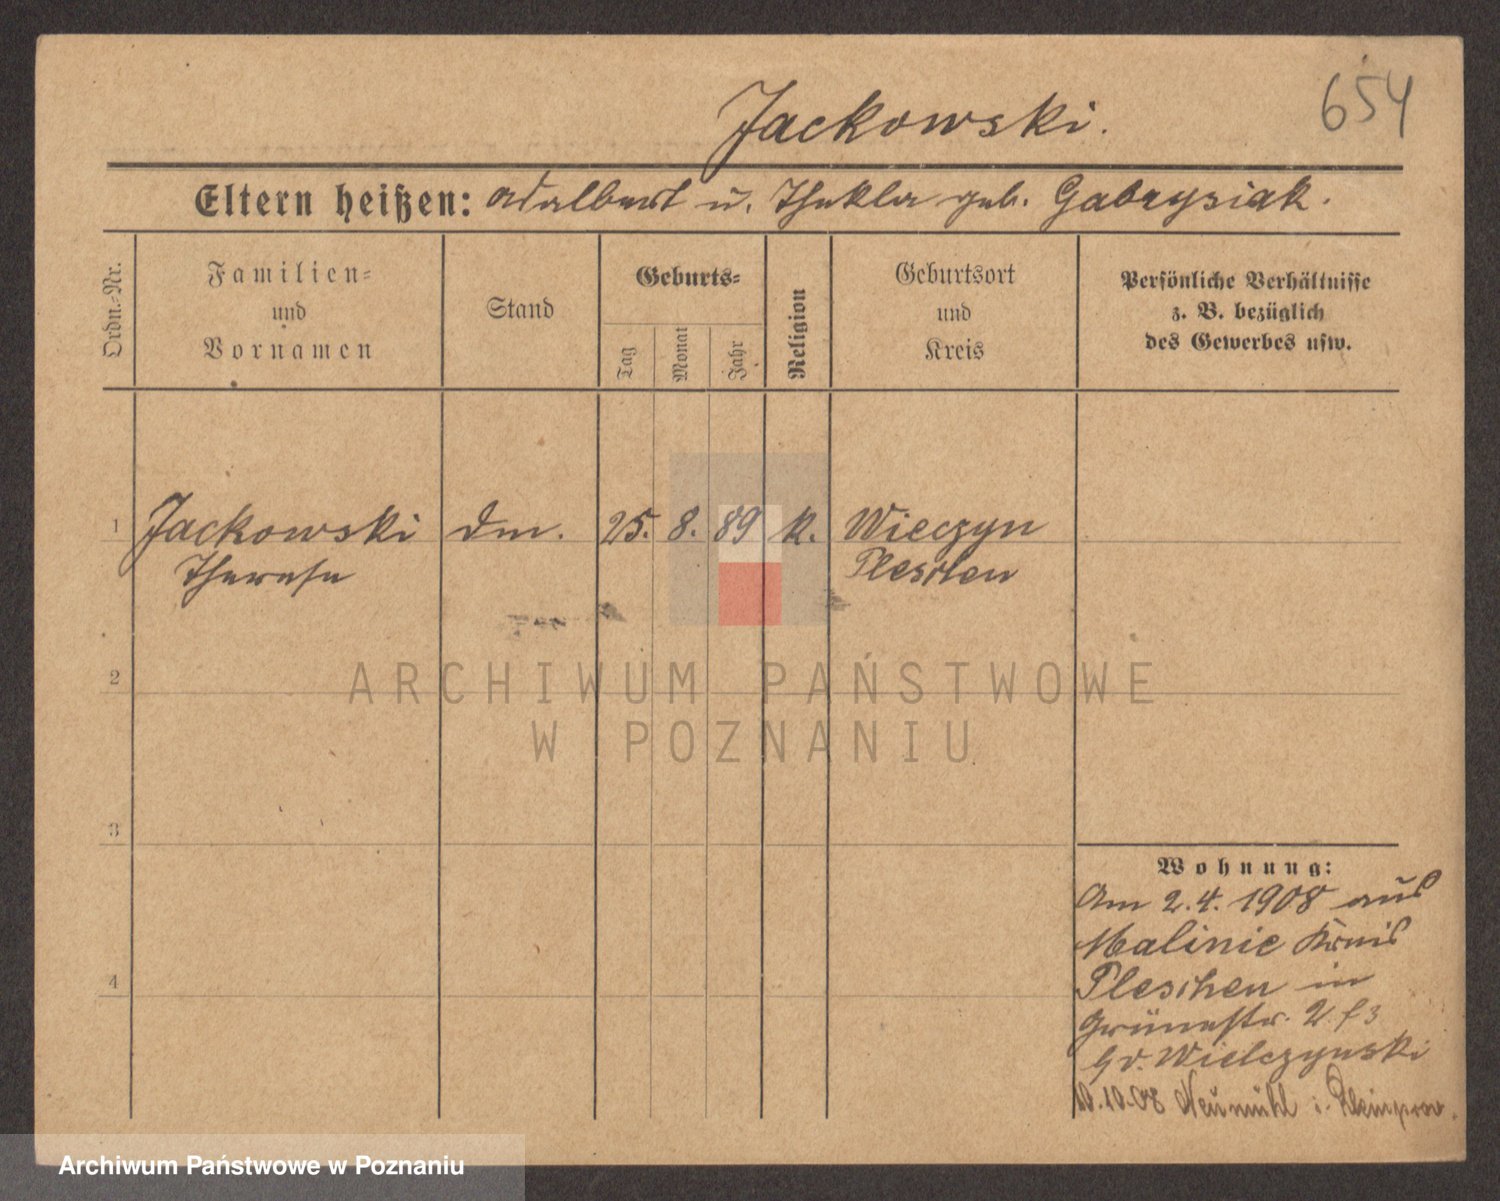 Jackowski.
654
Eltern heißen: Adalbert u. Thekla geb. Gabrysiak.
Ordn.-Nr.
Familien-
und
Vornamen
Stand
Geburts-
Tag
Monat
Jahr
Religion
Geburtsort
und
Kreis
Persönliche Verhältnisse
z. B. bezüglich
des Gewerbes usw.
1 Jackowski Dm. 25. 8. 89 k. Wieczyn
Therese Pleschen
2
3
4
Wohnung:
Am 2.4.1908 aus
Malinie Kreis
Pleschen in
Grünestr. 2
Wielczynski
10.10.08 Neumühl i. Rheinprov.
ARCHIWUM PAŃSTWOWE
W POZNANIU
Archiwum Państwowe w Poznaniu